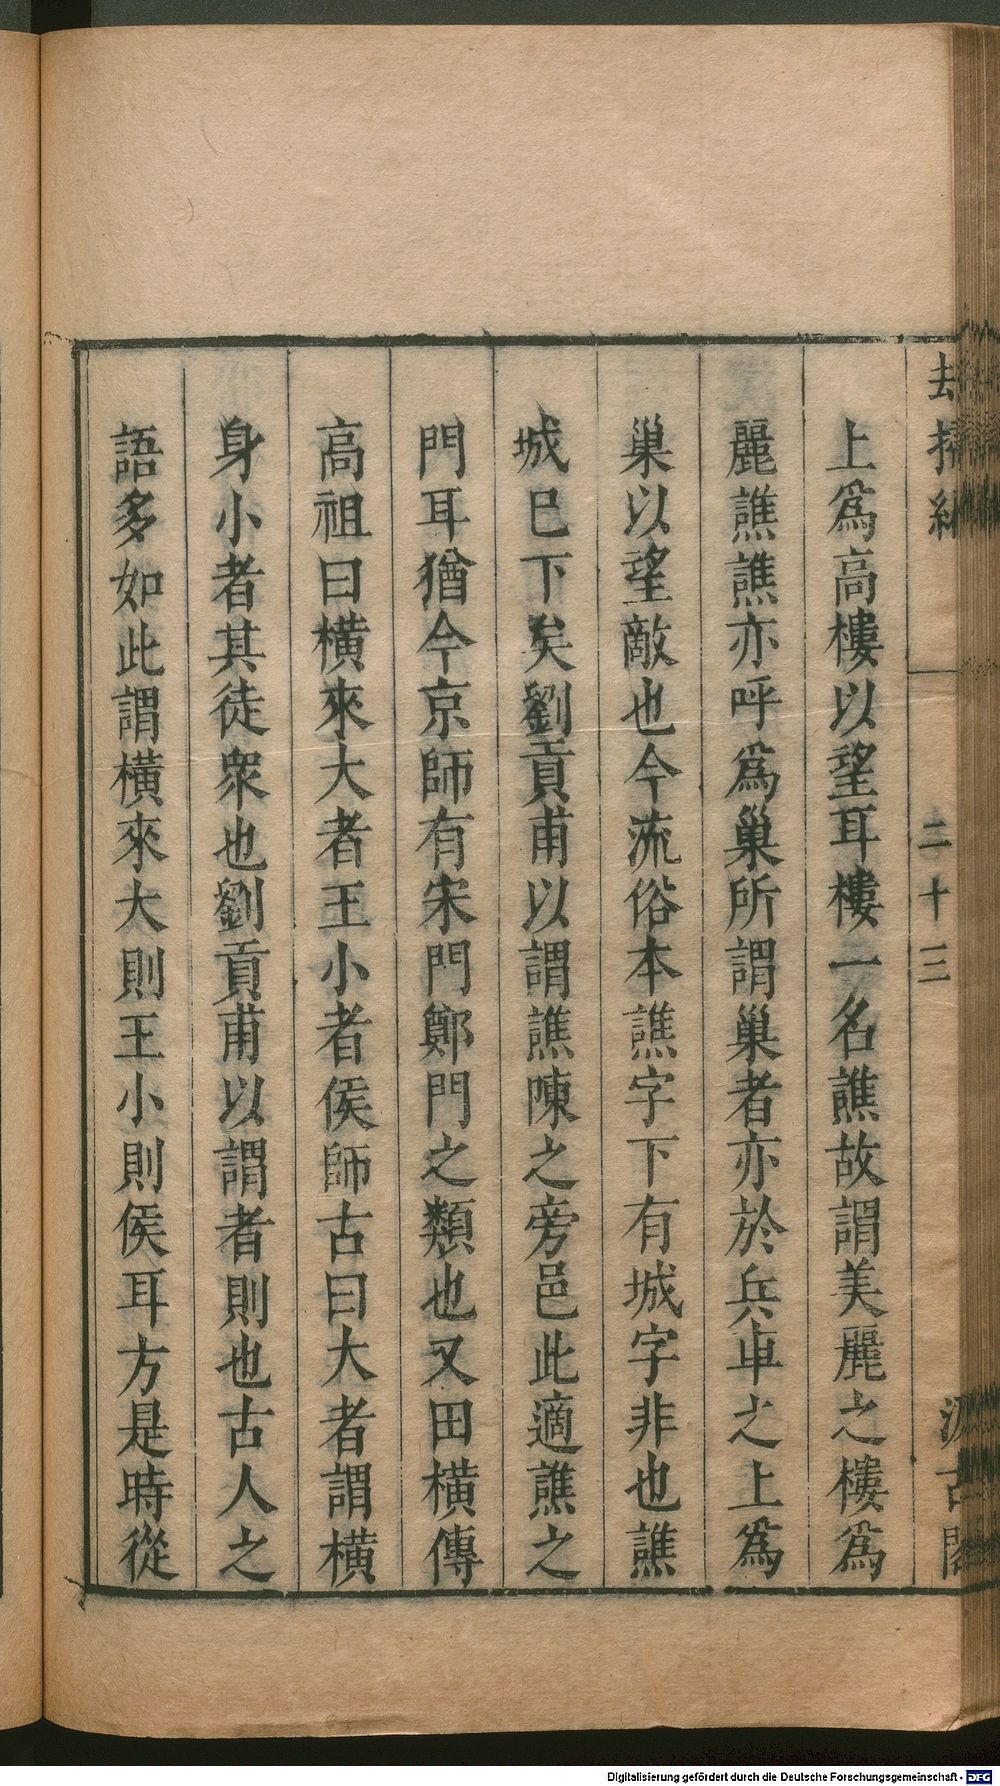 却掃編 二十三 汲古閣
上爲高樓以望耳樓一名譙故謂美麗之樓爲
麗譙譙亦呼爲巢所謂巢者亦於兵車之上爲
巢以望敵也今流俗本譙字下有城字非也譙
城巳下矣劉貢甫以謂譙陳之旁邑此適譙之
門耳猶今京師有宋門鄭門之類也又田橫傳
高祖曰橫來大者王小者侯師古曰大者謂橫
身小者其徒衆也劉貢甫以謂者則也古人之
語多如此謂橫來大則王小則侯耳方是時從
Digitalisierung gefördert durch die Deutsche Forschungsgemeinschaft - DFG